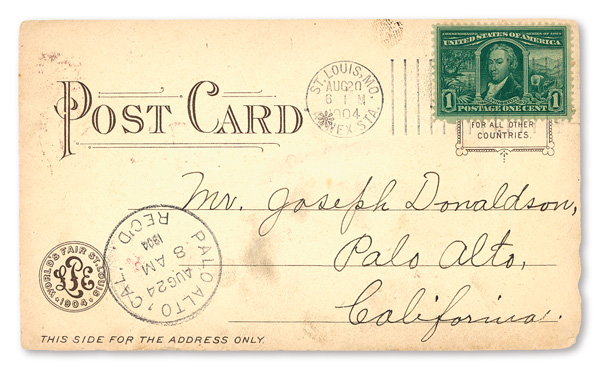 COMMEMORATIVE SERIES OF 1904
UNITED STATES OF AMERICA
1 POSTAGE ONE CENT 1
FOR ALL OTHER
COUNTRIES.
ST. LOUIS, MO.
AUG 20
6 PM
1904
STA.
POST CARD
Mr. Joseph Donaldson,
Palo Alto,
California.
PALO ALTO, CAL.
AUG 24
8 AM
1904
REC'D.
WORLD'S FAIR ST. LOUIS
1904
THIS SIDE FOR THE ADDRESS ONLY.